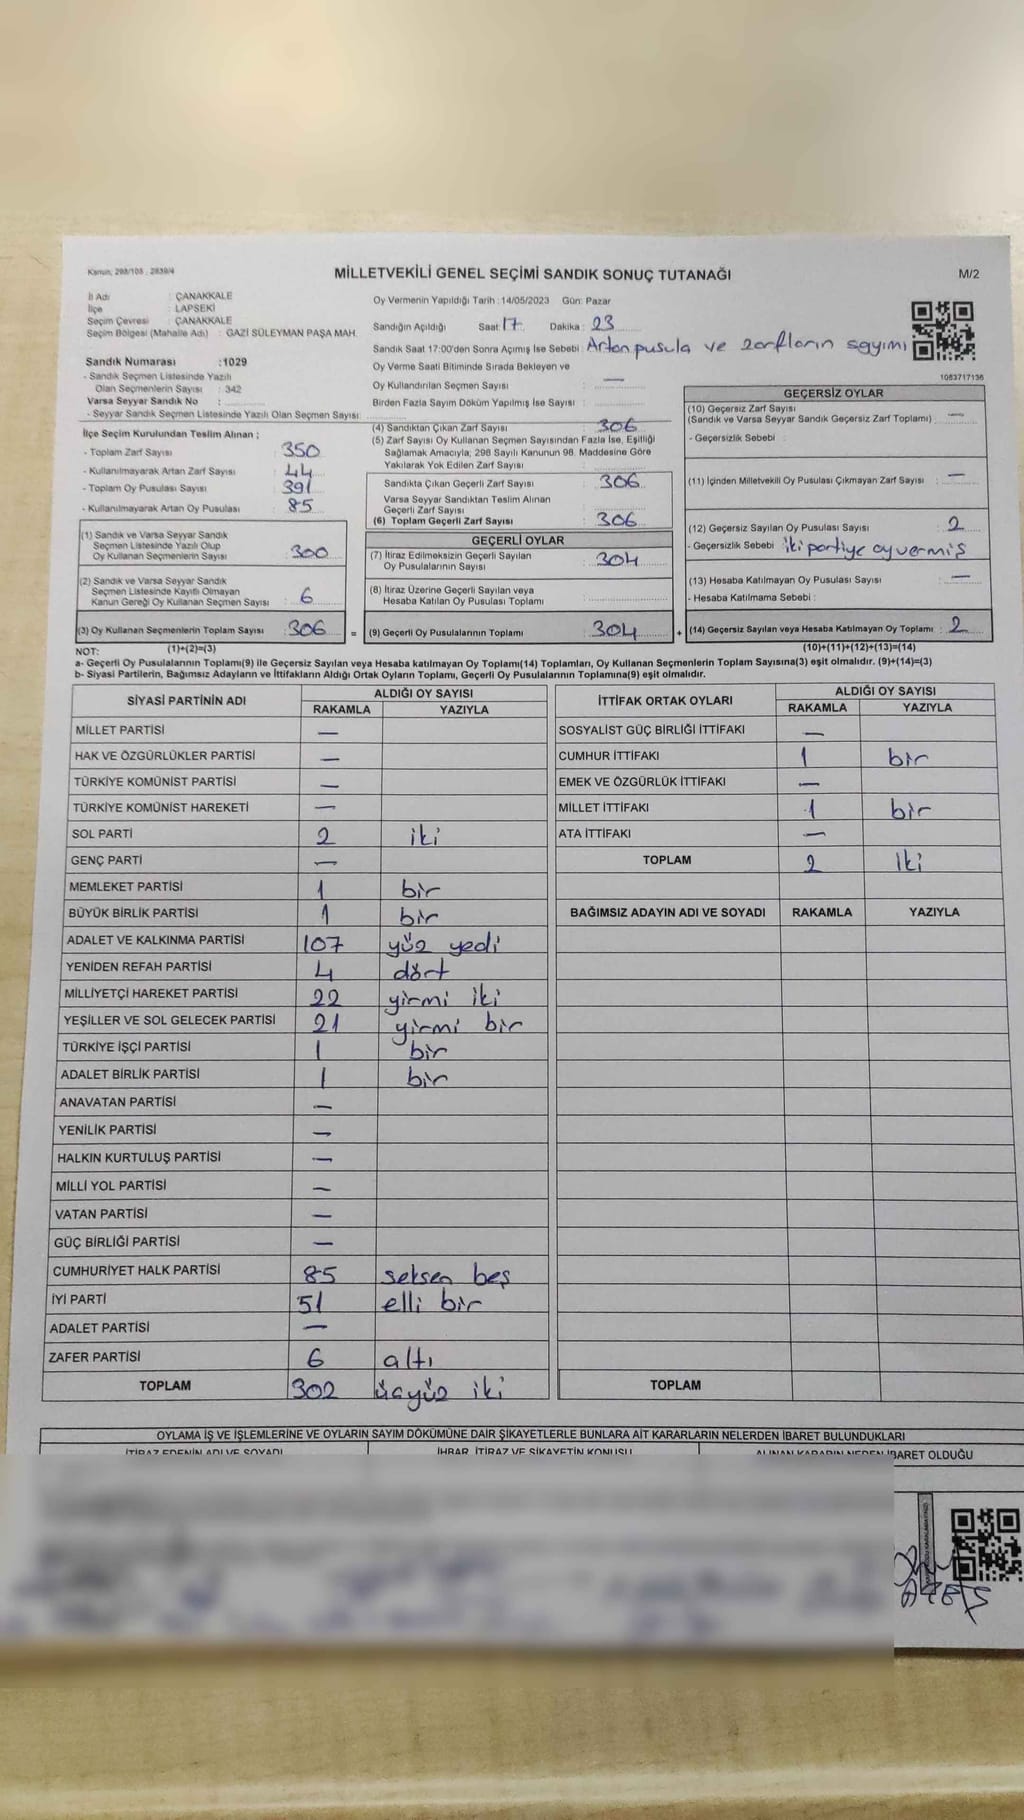 Kanun, 298/105 , 2839/4
MİLLETVEKİLİ GENEL SEÇİMİ SANDIK SONUÇ TUTANAĞI
M/2
İl Adı : ÇANAKKALE
İlçe : LAPSEKİ
Seçim Çevresi : ÇANAKKALE
Seçim Bölgesi (Mahalle Adı) : GAZİ SÜLEYMAN PAŞA MAH.
Sandık Numarası :1029
- Sandık Seçmen Listesinde Yazılı
Olan Seçmenlerin Sayısı : 342
Varsa Seyyar Sandık No :
- Seyyar Sandık Seçmen Listesinde Yazılı Olan Seçmen Sayısı:
Oy Vermenin Yapıldığı Tarih :14/05/2023 Gün: Pazar
Sandığın Açıldığı Saat 17 Dakika : 23
Sandık Saat 17:00'den Sonra Açımış İse Sebebi : Artan pusula ve zarfların sayımı
Oy Verme Saati Bitiminde Sırada Bekleyen ve
Oy Kullandırılan Seçmen Sayısı : —
Birden Fazla Sayım Döküm Yapılmış İse Sayısı :
1063717136
İlçe Seçim Kurulundan Teslim Alınan ;
- Toplam Zarf Sayısı : 350
- Kullanılmayarak Artan Zarf Sayısı : 44
- Toplam Oy Pusulası Sayısı : 391
- Kullanılmayarak Artan Oy Pusulası : 85
(1) Sandık ve Varsa Seyyar Sandık
Seçmen Listesinde Yazılı Olup
Oy Kullanan Seçmenlerin Sayısı : 300
(2) Sandık ve Varsa Seyyar Sandık
Seçmen Listesinde Kayıtlı Olmayan
Kanun Gereği Oy Kullanan Seçmen Sayısı : 6
(3) Oy Kullanan Seçmenlerin Toplam Sayısı : 306
(1)+(2)=(3)
(4) Sandıktan Çıkan Zarf Sayısı : 306
(5) Zarf Sayısı Oy Kullanan Seçmen Sayısından Fazla İse, Eşitliği
Sağlamak Amacıyla; 298 Sayılı Kanunun 98. Maddesine Göre
Yakılarak Yok Edilen Zarf Sayısı :
Sandıkta Çıkan Geçerli Zarf Sayısı : 306
Varsa Seyyar Sandıktan Teslim Alınan
Geçerli Zarf Sayısı :
(6) Toplam Geçerli Zarf Sayısı : 306
GEÇERLİ OYLAR
(7) İtiraz Edilmeksizin Geçerli Sayılan
Oy Pusulalarının Sayısı : 304
(8) İtiraz Üzerine Geçerli Sayılan veya
Hesaba Katılan Oy Pusulası Toplamı :
= (9) Geçerli Oy Pusulalarının Toplamı : 304
GEÇERSİZ OYLAR
(10) Geçersiz Zarf Sayısı
(Sandık ve Varsa Seyyar Sandık Geçersiz Zarf Toplamı) : —
- Geçersizlik Sebebi :
(11) İçinden Milletvekili Oy Pusulası Çıkmayan Zarf Sayısı : —
(12) Geçersiz Sayılan Oy Pusulası Sayısı : 2
- Geçersizlik Sebebi : iki partiye oy vermiş
(13) Hesaba Katılmayan Oy Pusulası Sayısı : —
- Hesaba Katılmama Sebebi :
+ (14) Geçersiz Sayılan veya Hesaba Katılmayan Oy Toplamı : 2
(10)+(11)+(12)+(13)=(14)
NOT:
a- Geçerli Oy Pusulalarının Toplamı(9) ile Geçersiz Sayılan veya Hesaba katılmayan Oy Toplamı(14) Toplamları, Oy Kullanan Seçmenlerin Toplam Sayısına(3) eşit olmalıdır. (9)+(14)=(3)
b- Siyasi Partilerin, Bağımsız Adayların ve İttifakların Aldığı Ortak Oyların Toplamı, Geçerli Oy Pusulalarının Toplamına(9) eşit olmalıdır.
SİYASİ PARTİNİN ADI ALDIĞI OY SAYISI
RAKAMLA YAZIYLA
MİLLET PARTİSİ —
HAK VE ÖZGÜRLÜKLER PARTİSİ —
TÜRKİYE KOMÜNİST PARTİSİ —
TÜRKİYE KOMÜNİST HAREKETİ —
SOL PARTİ 2 iki
GENÇ PARTİ —
MEMLEKET PARTİSİ 1 bir
BÜYÜK BİRLİK PARTİSİ 1 bir
ADALET VE KALKINMA PARTİSİ 107 yüz yedi
YENİDEN REFAH PARTİSİ 4 dört
MİLLİYETÇİ HAREKET PARTİSİ 22 yirmi iki
YEŞİLLER VE SOL GELECEK PARTİSİ 21 yirmi bir
TÜRKİYE İŞÇİ PARTİSİ 1 bir
ADALET BİRLİK PARTİSİ 1 bir
ANAVATAN PARTİSİ —
YENİLİK PARTİSİ —
HALKIN KURTULUŞ PARTİSİ —
MİLLİ YOL PARTİSİ —
VATAN PARTİSİ —
GÜÇ BİRLİĞİ PARTİSİ —
CUMHURİYET HALK PARTİSİ 85 seksen beş
İYİ PARTİ 51 elli bir
ADALET PARTİSİ —
ZAFER PARTİSİ 6 altı
TOPLAM 302 üçyüz iki
İTTİFAK ORTAK OYLARI ALDIĞI OY SAYISI
RAKAMLA YAZIYLA
SOSYALİST GÜÇ BİRLİĞİ İTTİFAKI —
CUMHUR İTTİFAKI 1 bir
EMEK VE ÖZGÜRLÜK İTTİFAKI —
MİLLET İTTİFAKI 1 bir
ATA İTTİFAKI —
TOPLAM 2 iki
BAĞIMSIZ ADAYIN ADI VE SOYADI RAKAMLA YAZIYLA
TOPLAM
OYLAMA İŞ VE İŞLEMLERİNE VE OYLARIN SAYIM DÖKÜMÜNE DAİR ŞİKAYETLERLE BUNLARA AİT KARARLARIN NELERDEN İBARET BULUNDUKLARI
İTİRAZ EDENİN ADI VE SOYADI İHBAR, İTİRAZ VE ŞİKAYETİN KONUSU ALINAN KARARIN NEDEN İBARET OLDUĞU